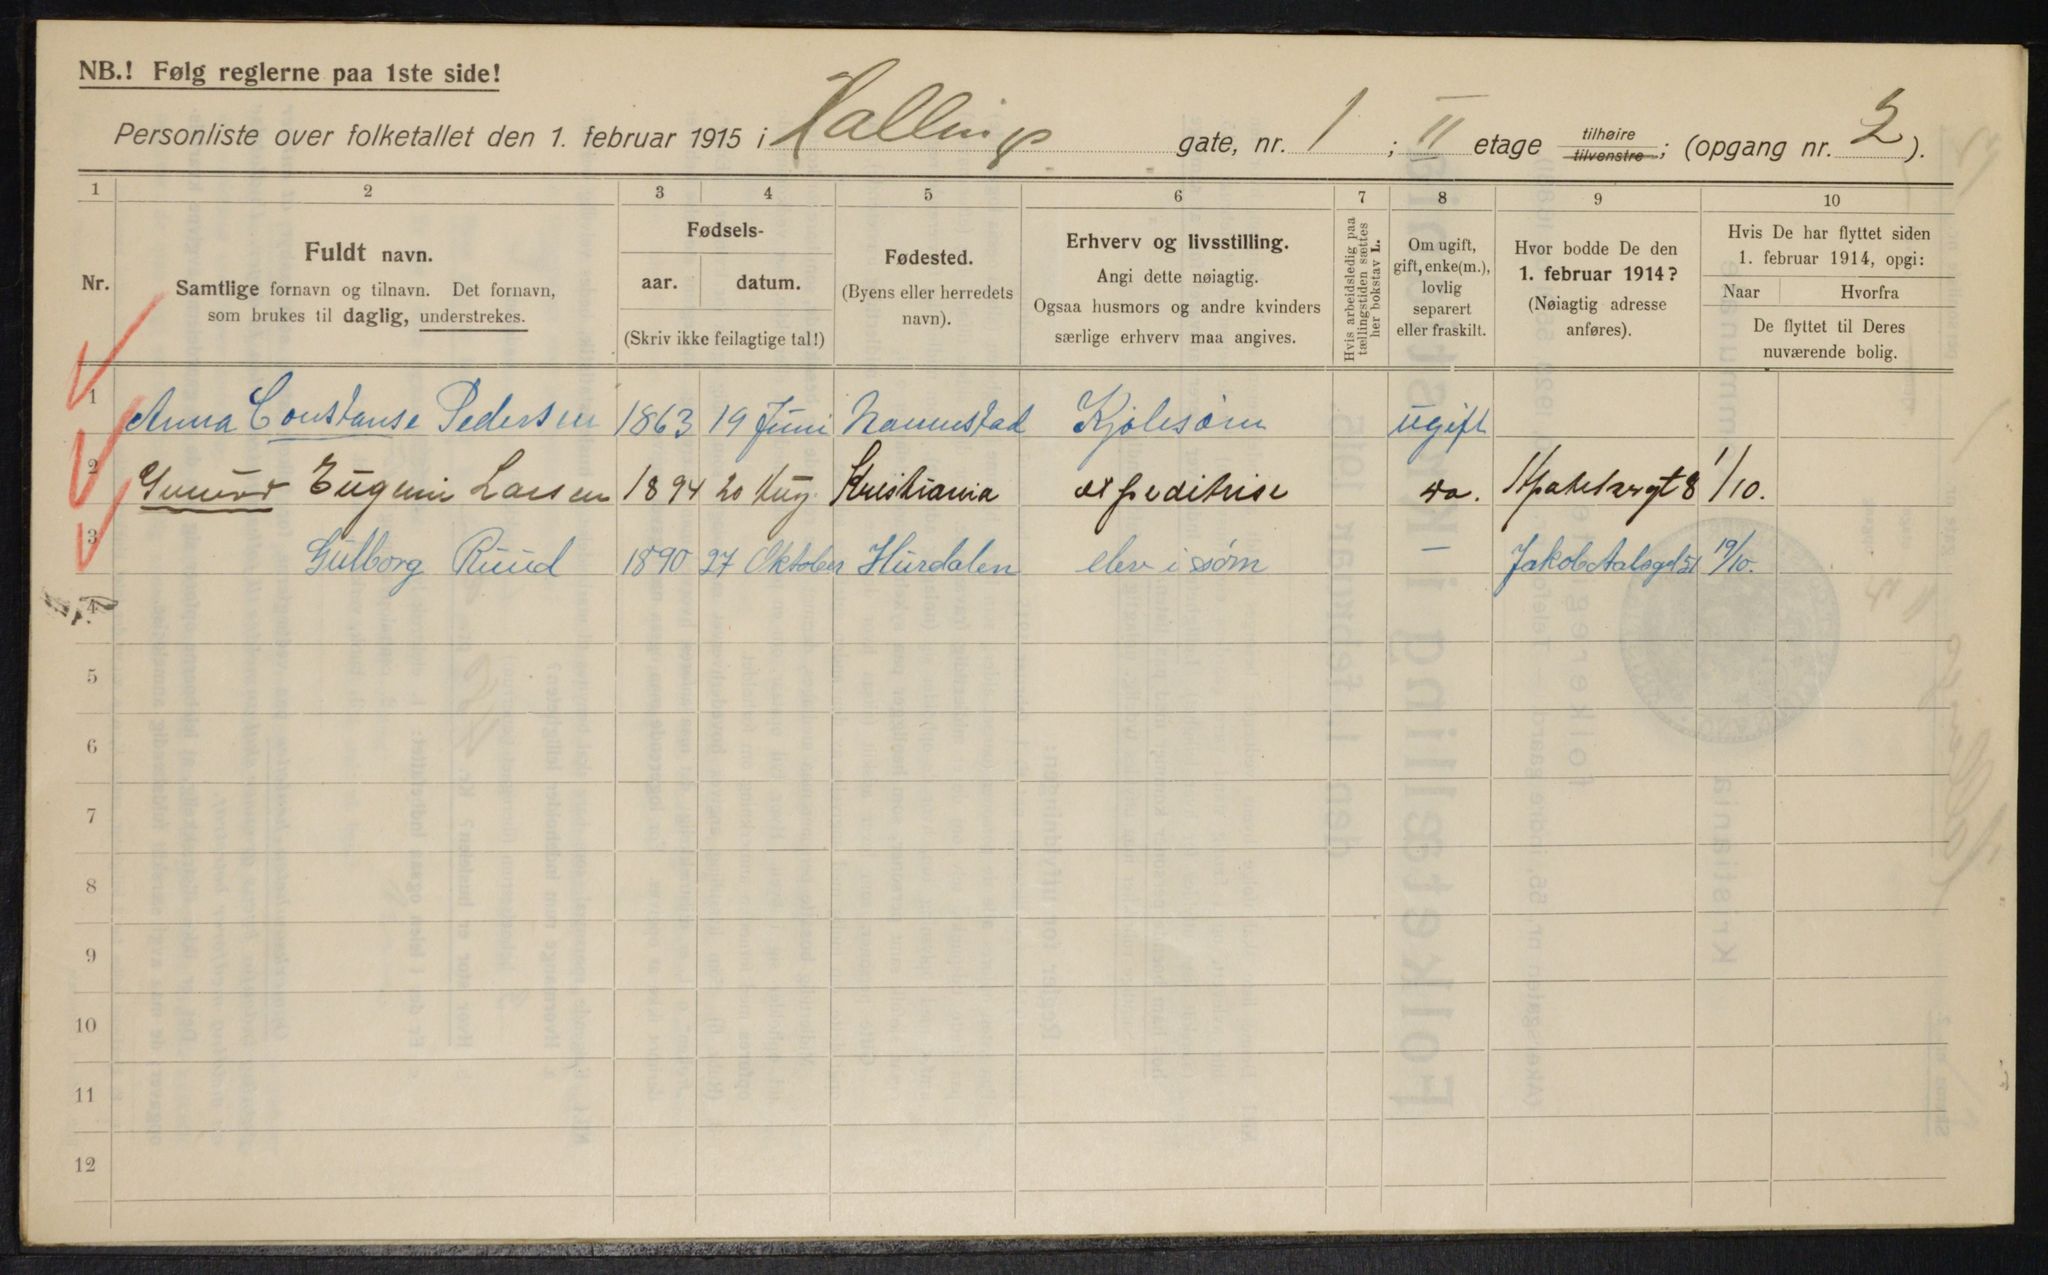 NB.! Følg reglerne paa 1ste side!
Personliste over folketallet den 1. februar 1915 i Hallings gate, nr. 1 ; II etage tilhøire tilvenstre ; (opgang nr. 2 ).
1 2 3 4 5 6 7 8 9 10
Nr.
Fuldt navn.
Samtlige fornavn og tilnavn. Det fornavn,
som brukes til daglig, understrekes.
Fødsels-
aar. datum.
(Skriv ikke feilagtige tal!)
Fødested.
(Byens eller herredets
navn).
Erhverv og livsstilling.
Angi dette nøiagtig.
Ogsaa husmors og andre kvinders
særlige erhverv maa angives.
Hvis arbeidsledig paa
tællingstiden sættes
her bokstav L.
Om ugift,
gift, enke(m.),
lovlig
separert
eller fraskilt.
Hvor bodde De den
1. februar 1914?
(Nøiagtig adresse
anføres).
Hvis De har flyttet siden
1. februar 1914, opgi:
Naar Hvorfra
De flyttet til Deres
nuværende bolig.
1 Anna Constanse Pedersen 1863 19 Juni Nannestad Kjolesøm ugift
2 Gunvor Eugenie Larsen 1894 20 Aug. Kristiania expeditrise do. 1/10.
3 Gulborg Ruud 1890 27 Oktober Hurdalen elev i søm — Jakob Aalsgt 51 19/10.
4
5
6
7
8
9
10
11
12